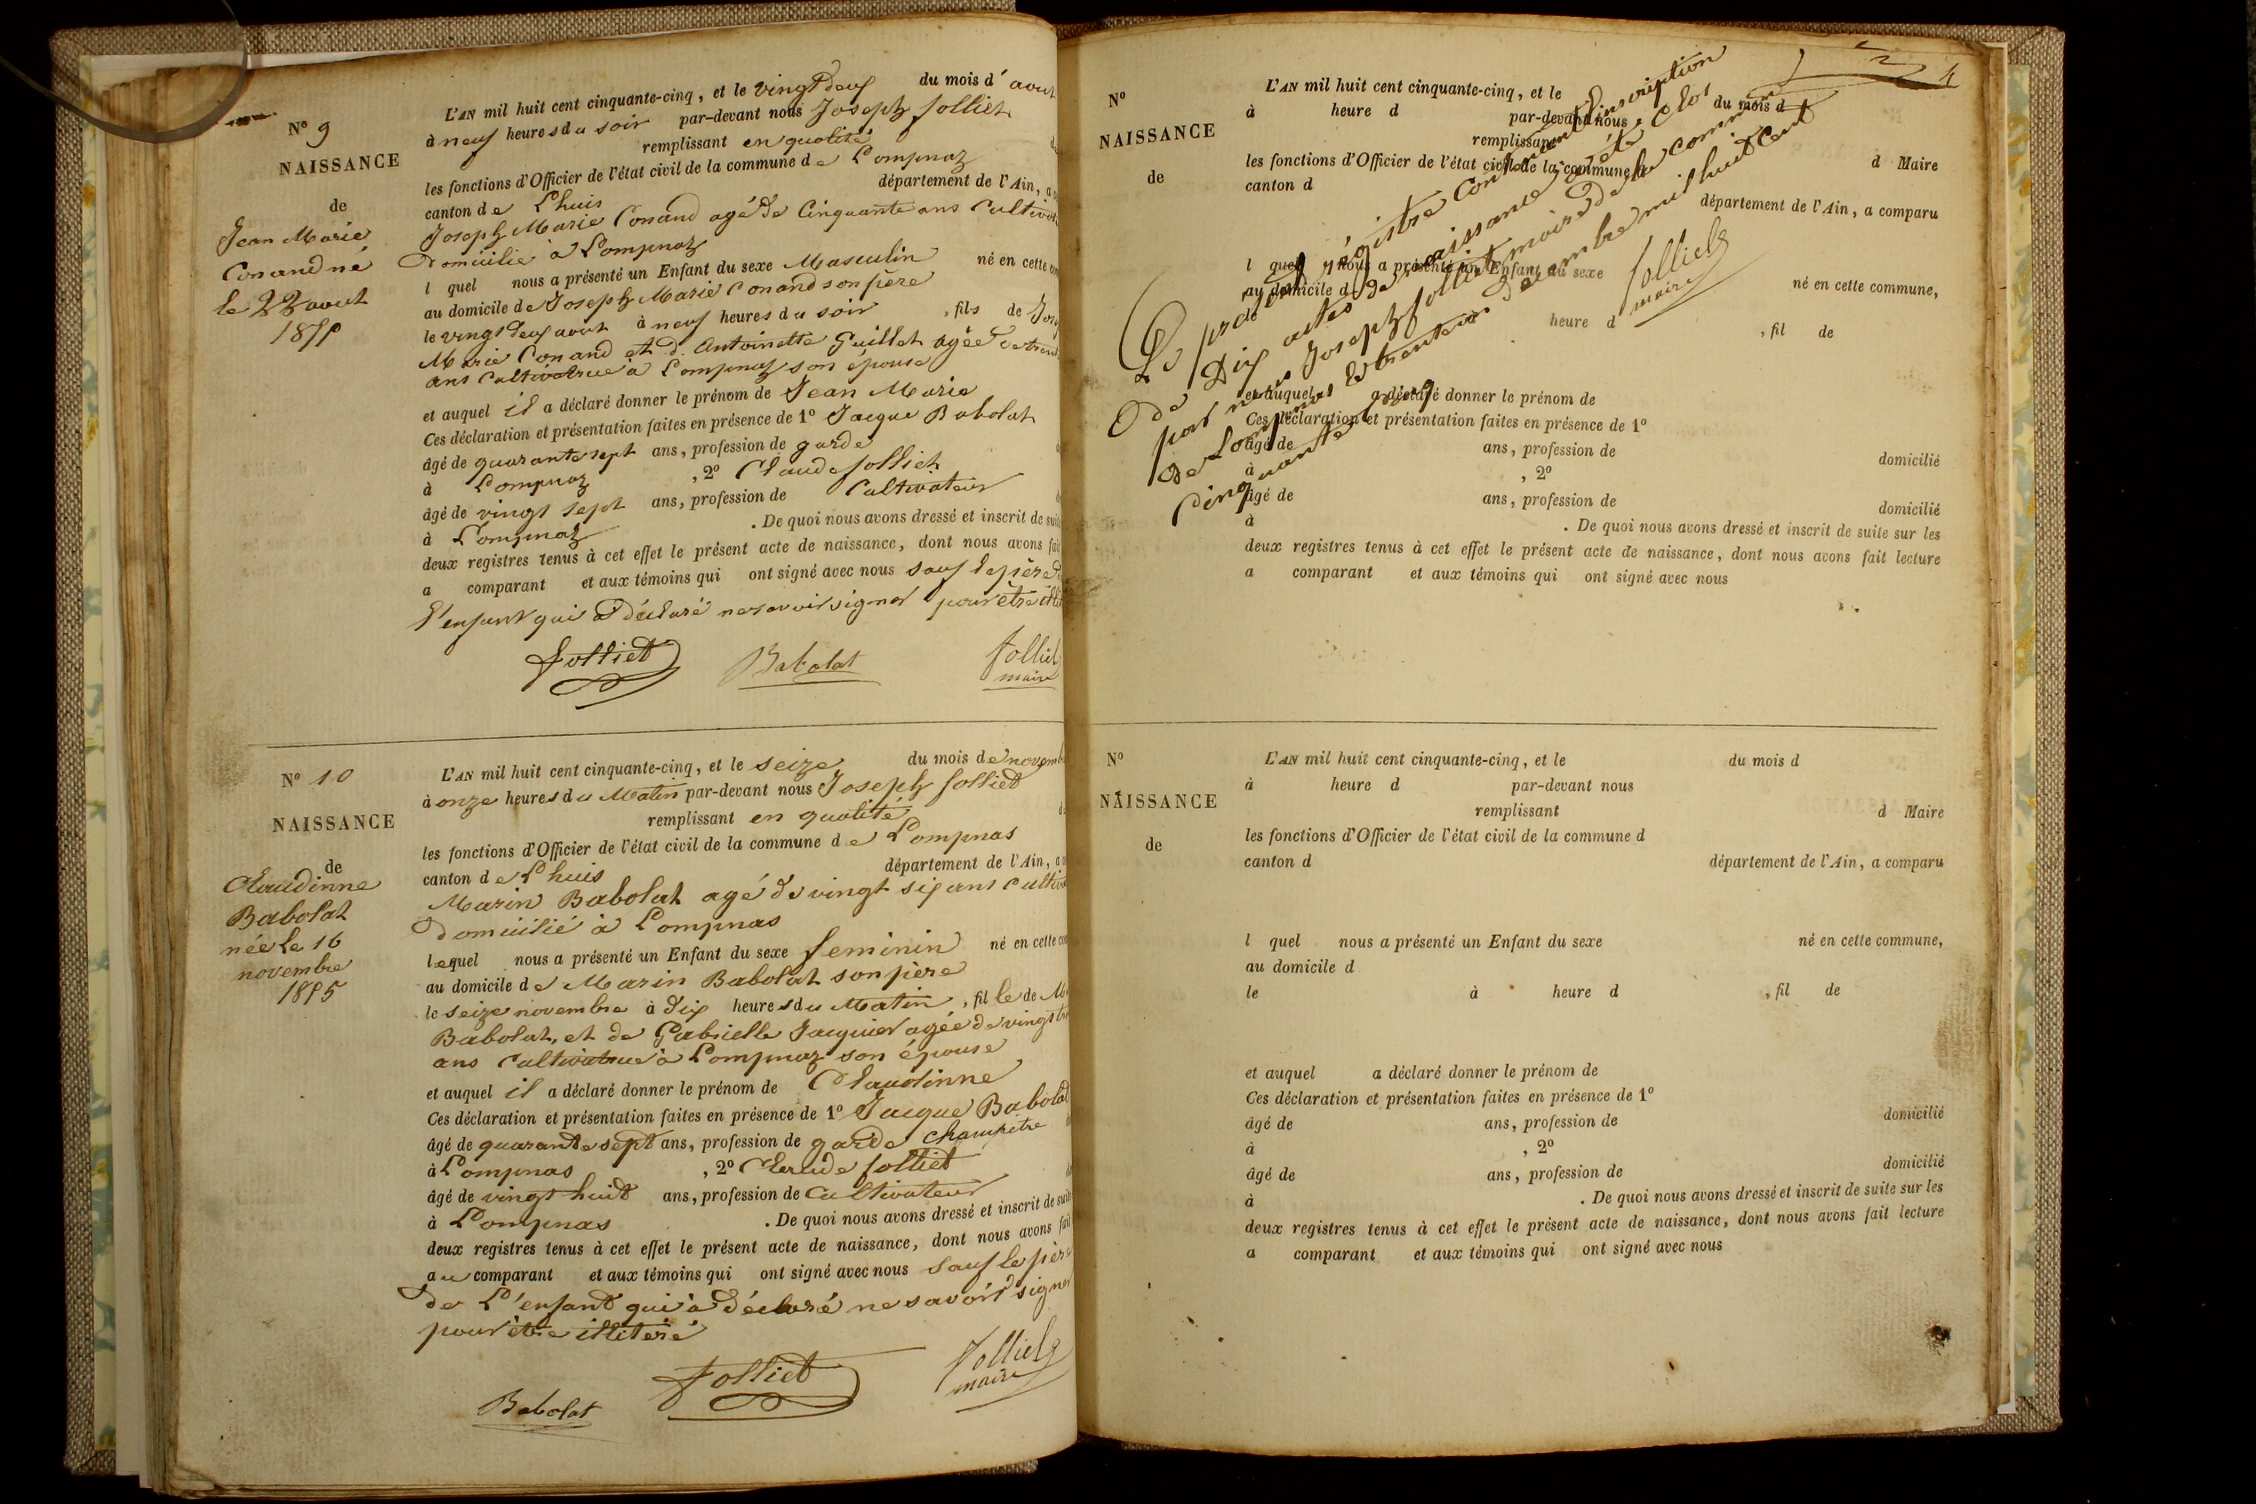 N° 9
NAISSANCE
de
Jean Marie
Conand né
le 22 aout
1855
L'AN mil huit cent cinquante-cinq, et le vingt deux du mois d'aout
à neuf heures du soir par-devant nous Joseph Jolliet
remplissant en qualité
les fonctions d'Officier de l'état civil de la commune de Lompnaz
canton de Lhuis département de l'Ain,
Joseph Marie Conand agé de Cinquante ans
Domicilié à Lompnaz
l quel nous a présenté un Enfant du sexe Masculin né en cette
au domicile de Joseph Marie Conand son père
le vingt deux aout à neuf heures du soir, fils de
Marie Conand et d. Antoinette Guillet agée de
ans Cultivatrice à Lompnaz son épouse
et auquel il a déclaré donner le prénom de Jean Marie
Ces déclaration et présentation faites en présence de 1° Jacque Babolat
âgé de quarante sept ans, profession de garde
à Lompnaz, 2° Claude Jolliet
âgé de vingt sept ans, profession de Cultivateur
à Lompnaz. De quoi nous avons dressé et inscrit de suite
deux registres tenus à cet effet le présent acte de naissance, dont nous avons fait
a comparant et aux témoins qui ont signé avec nous sauf le père de
l'enfant qui a déclaré ne savoir signer pour être
Jolliet Babolat Jolliet
maire
N° 10
NAISSANCE
de
Claudinne
Babolat
née le 16
novembre
1855
L'AN mil huit cent cinquante-cinq, et le seize du mois de
à onze heures du Matin par-devant nous Joseph Jolliet
remplissant en qualité
les fonctions d'Officier de l'état civil de la commune de Lompnas
canton de Lhuis département de l'Ain,
Marin Babolat agé de vingt six ans
Domicilié à Lompnas
lequel nous a présenté un Enfant du sexe feminin né en cette
au domicile de Marin Babolat son père
le seize novembre à dix heures du Matin, fille de
Babolat, et de Gabrielle Jacquier agée de vingt
ans Cultivatrice à Lompnaz son épouse
et auquel il a déclaré donner le prénom de Claudinne
Ces déclaration et présentation faites en présence de 1° Jacque Babolat
âgé de quarante sept ans, profession de garde champêtre
à Lompnas, 2° Claude Jolliet
âgé de vingt huit ans, profession de Cultivateur
à Lompnas. De quoi nous avons dressé et inscrit de suite
deux registres tenus à cet effet le présent acte de naissance, dont nous avons fait
au comparant et aux témoins qui ont signé avec nous sauf le père
de L'enfant qui à déclaré ne savoir signer
pour être illiteré
Babolat Jolliet Jolliet
maire
N°
NAISSANCE
de
L'AN mil huit cent cinquante-cinq, et le du mois d
à heure d par-devant nous
remplissant d Maire
les fonctions d'Officier de l'état civil de la commune d
canton d département de l'Ain, a comparu
l quel nous a présenté un Enfant du sexe né en cette commune,
au domicile d
heure d, fil de
et auquel a déclaré donner le prénom de
Ces déclaration et présentation faites en présence de 1°
âgé de ans, profession de domicilié
à, 2°
âgé de ans, profession de domicilié
à. De quoi nous avons dressé et inscrit de suite sur les
deux registres tenus à cet effet le présent acte de naissance, dont nous avons fait lecture
a comparant et aux témoins qui ont signé avec nous
Le présent régistre contenant l'inscription
De Dix actes de naissance a été clos
par nous Joseph Jolliet maire de la commune
De Lompnas le trente un decembre mil huit cent
cinquante cinq
Jolliet
maire
N°
NAISSANCE
de
L'AN mil huit cent cinquante-cinq, et le du mois d
à heure d par-devant nous
remplissant d Maire
les fonctions d'Officier de l'état civil de la commune d
canton d département de l'Ain, a comparu
l quel nous a présenté un Enfant du sexe né en cette commune,
au domicile d
le à heure d, fil de
et auquel a déclaré donner le prénom de
Ces déclaration et présentation faites en présence de 1°
âgé de ans, profession de domicilié
à, 2°
âgé de ans, profession de domicilié
à. De quoi nous avons dressé et inscrit de suite sur les
deux registres tenus à cet effet le présent acte de naissance, dont nous avons fait lecture
a comparant et aux témoins qui ont signé avec nous